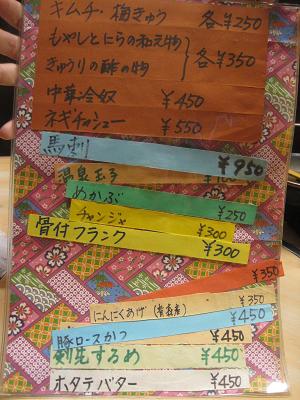 キムチ・梅きゅう 各¥250
もやしとにらの和え物
きゅうりの酢の物 各¥350
中華冷奴 ¥450
ネギチャシュー ¥550
馬刺 ¥950
温泉玉子
めかぶ ¥250
チャンジャ ¥300
骨付フランク ¥300
¥350
にんにくあげ(青森産) ¥350
¥450
豚ロースかつ ¥450
刺先するめ ¥450
ホタテバター ¥450